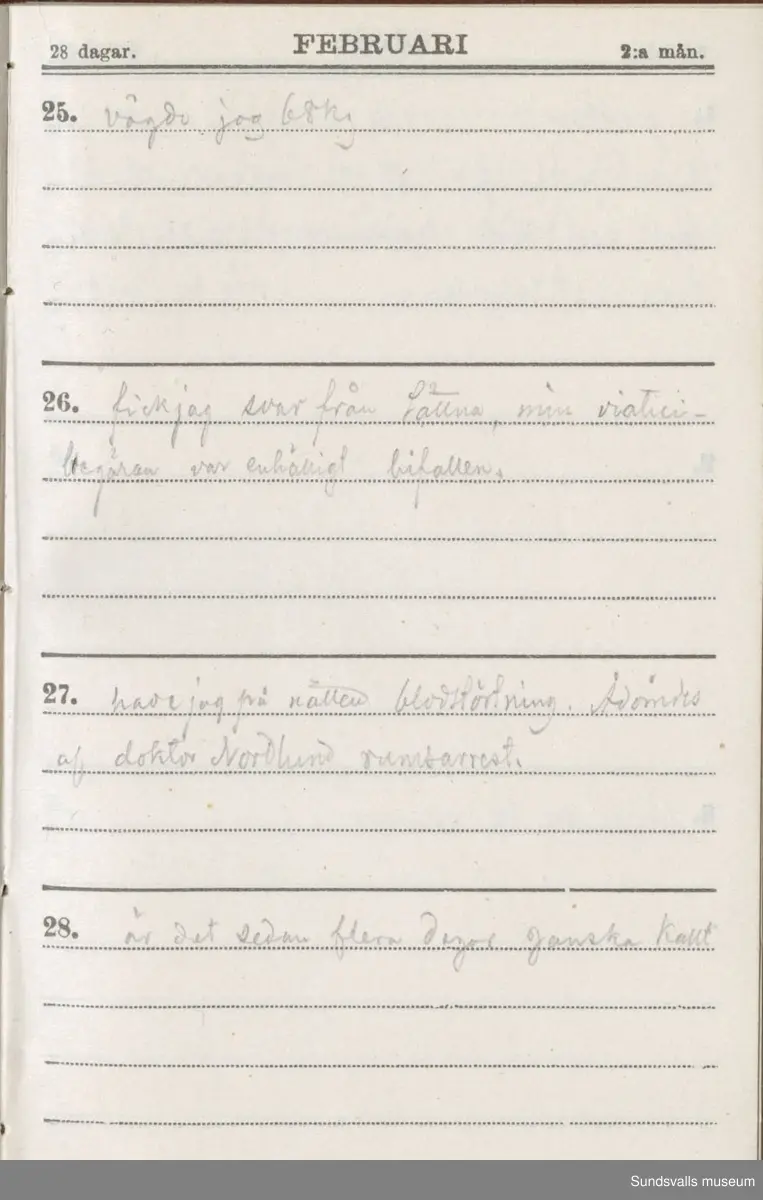 28 dagar. FEBRUARI 2:a mån.
25. vägde jag 68 kg
26. fick jag svar från Sättna, min viatici-
begäran var enhälligt bifallen.
27. hade jag på natten blodstörtning. Ådömdes
af doktor Nordlund rumsarrest.
28. är det sedan flera dagar ganska kallt
Sundsvalls museum